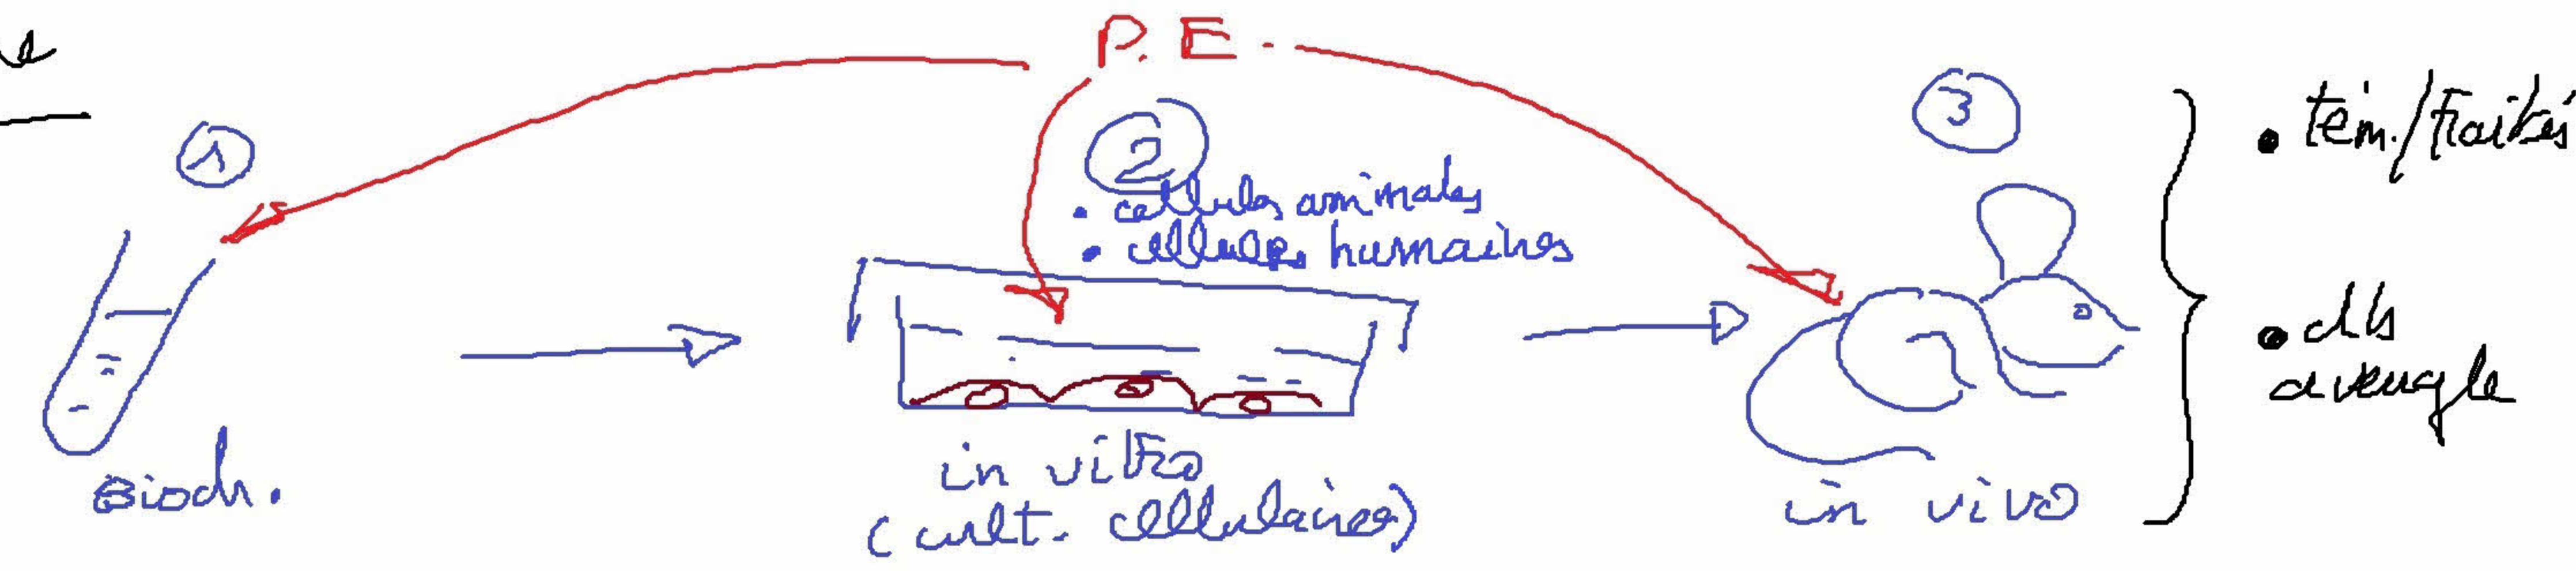 P. E.
1
2
• cellules animales
• cellules humaines
3
Bioch.
in vitro
(cult. cellulaires)
in vivo
• tém./traités
• dbs
aveugle